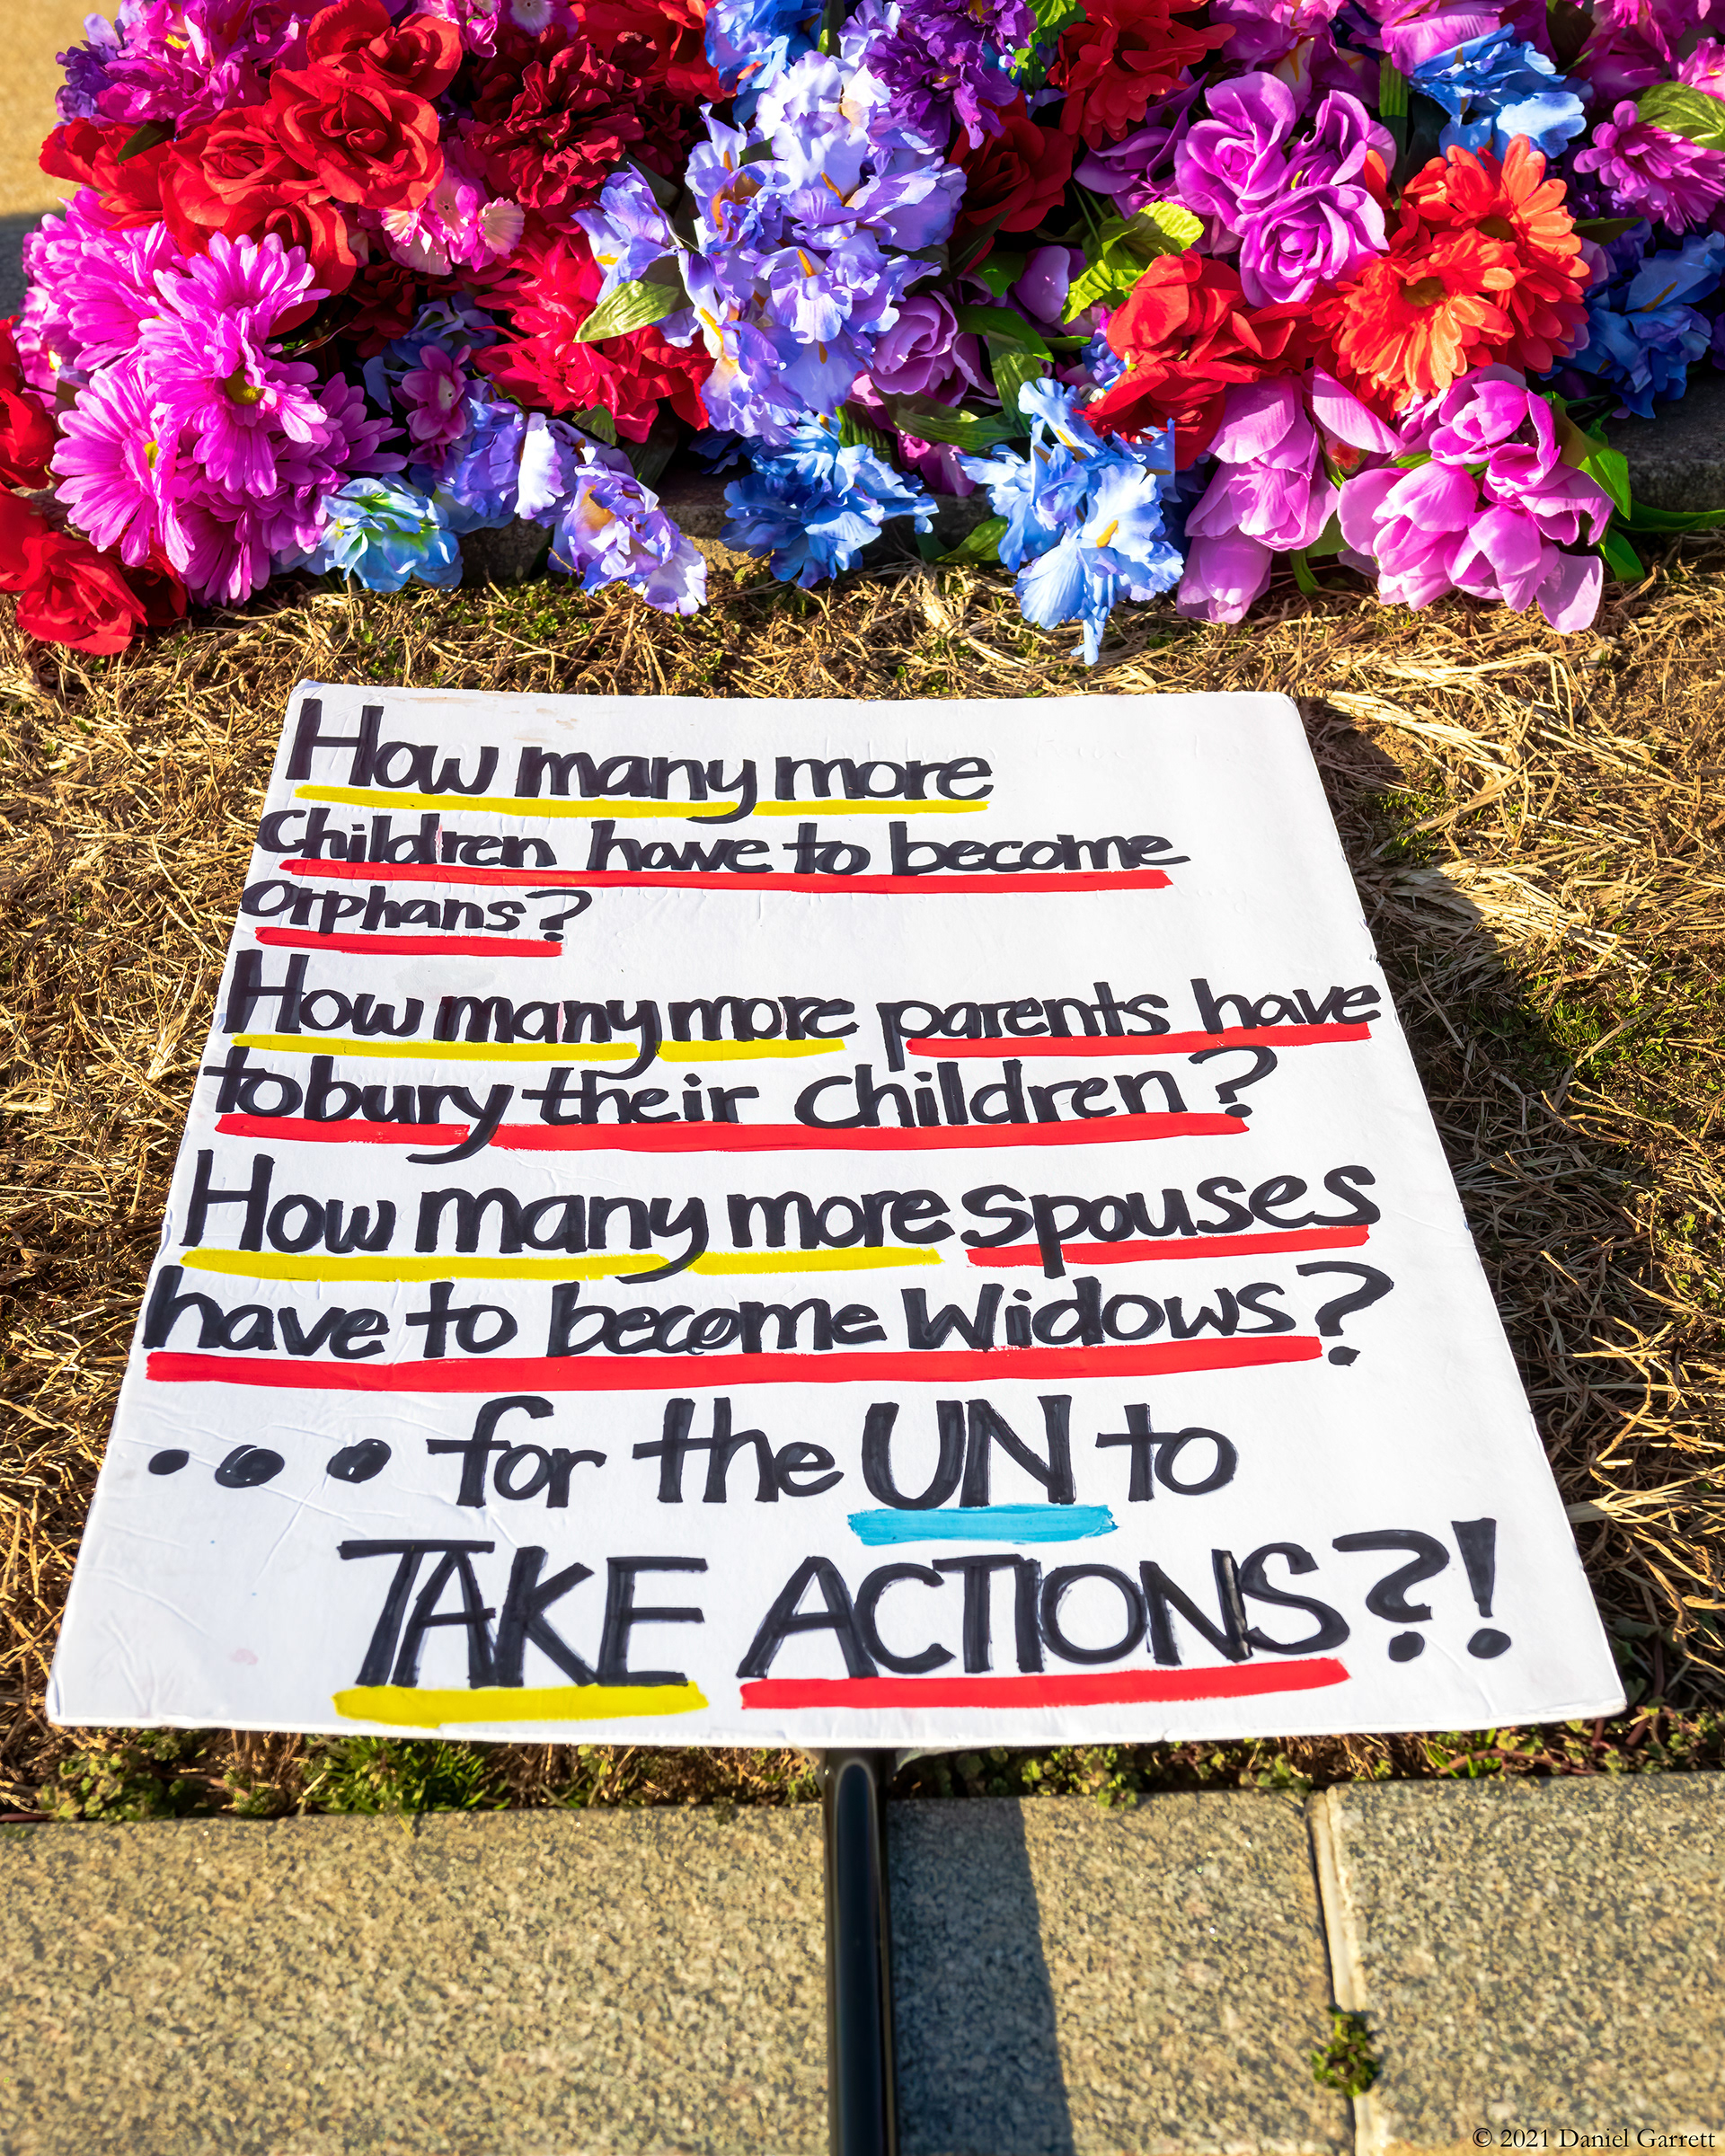 How many more
Children have to become
orphans?
How many more parents have
to bury their children?
How many more spouses
have to become Widows?
... for the UN to
TAKE ACTIONS?!
© 2021 Daniel Garrett